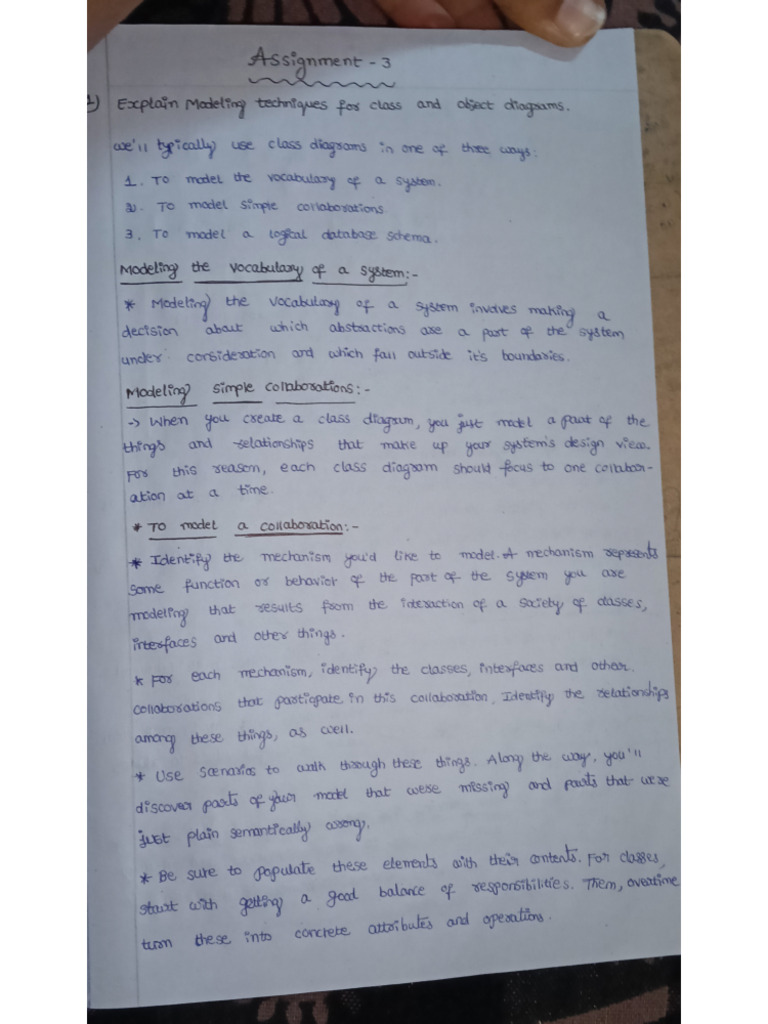 Assignment - 3
1) Explain Modeling techniques for class and object diagrams.
we'll typically use class diagrams in one of three ways:
1. To model the vocabulary of a system.
2. To model simple collaborations
3. To model a logical database schema.
Modeling the vocabulary of a system:-
* Modeling the vocabulary of a system involves making a
decision about which abstractions are a part of the system
under consideration and which fall outside it's boundaries.
Modeling simple collaborations:-
-> When you create a class diagram, you just model a part of the
things and relationships that make up your system's design view.
For this reason, each class diagram should focus to one collabor-
ation at a time.
* To model a collaboration:-
* Identify the mechanism you'd like to model. A mechanism represents
some function or behavior of the part of the system you are
modeling that results from the interaction of a society of classes,
interfaces and other things.
* For each mechanism, identify the classes, interfaces and other
collaborations that participate in this collaboration. Identify the relationships
among these things, as well.
* Use scenarios to walk through these things. Along the way, you'll
discover parts of your model that were missing and parts that were
just plain semantically wrong.
* Be sure to populate these elements with their contents. For classes,
start with getting a good balance of responsibilities. Them, overtime
turn these into concrete attributes and operations.